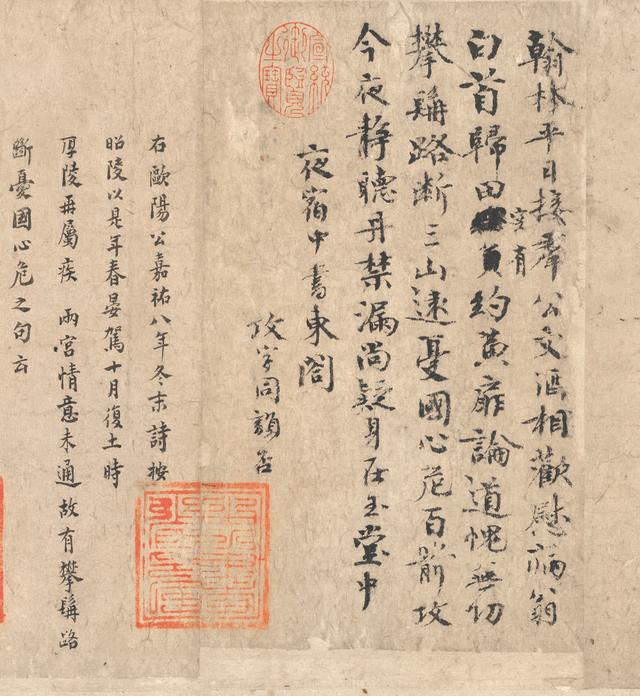 翰林平日接羣公文酒相歡慰病翁
白首歸田負約黃扉論道愧無功
空有
攀髯路斷三山遠憂國心危百箭攻
今夜靜聽丹禁漏尚疑身在玉堂中
夜宿中書東閤
攻字同韻否
宣統御覽之寶
右歐陽公嘉祐八年冬末詩按
昭陵以是年春晏駕十月復土時
厚陵再屬疾 兩宮情意未通故有攀髯路
斷憂國心危之句云